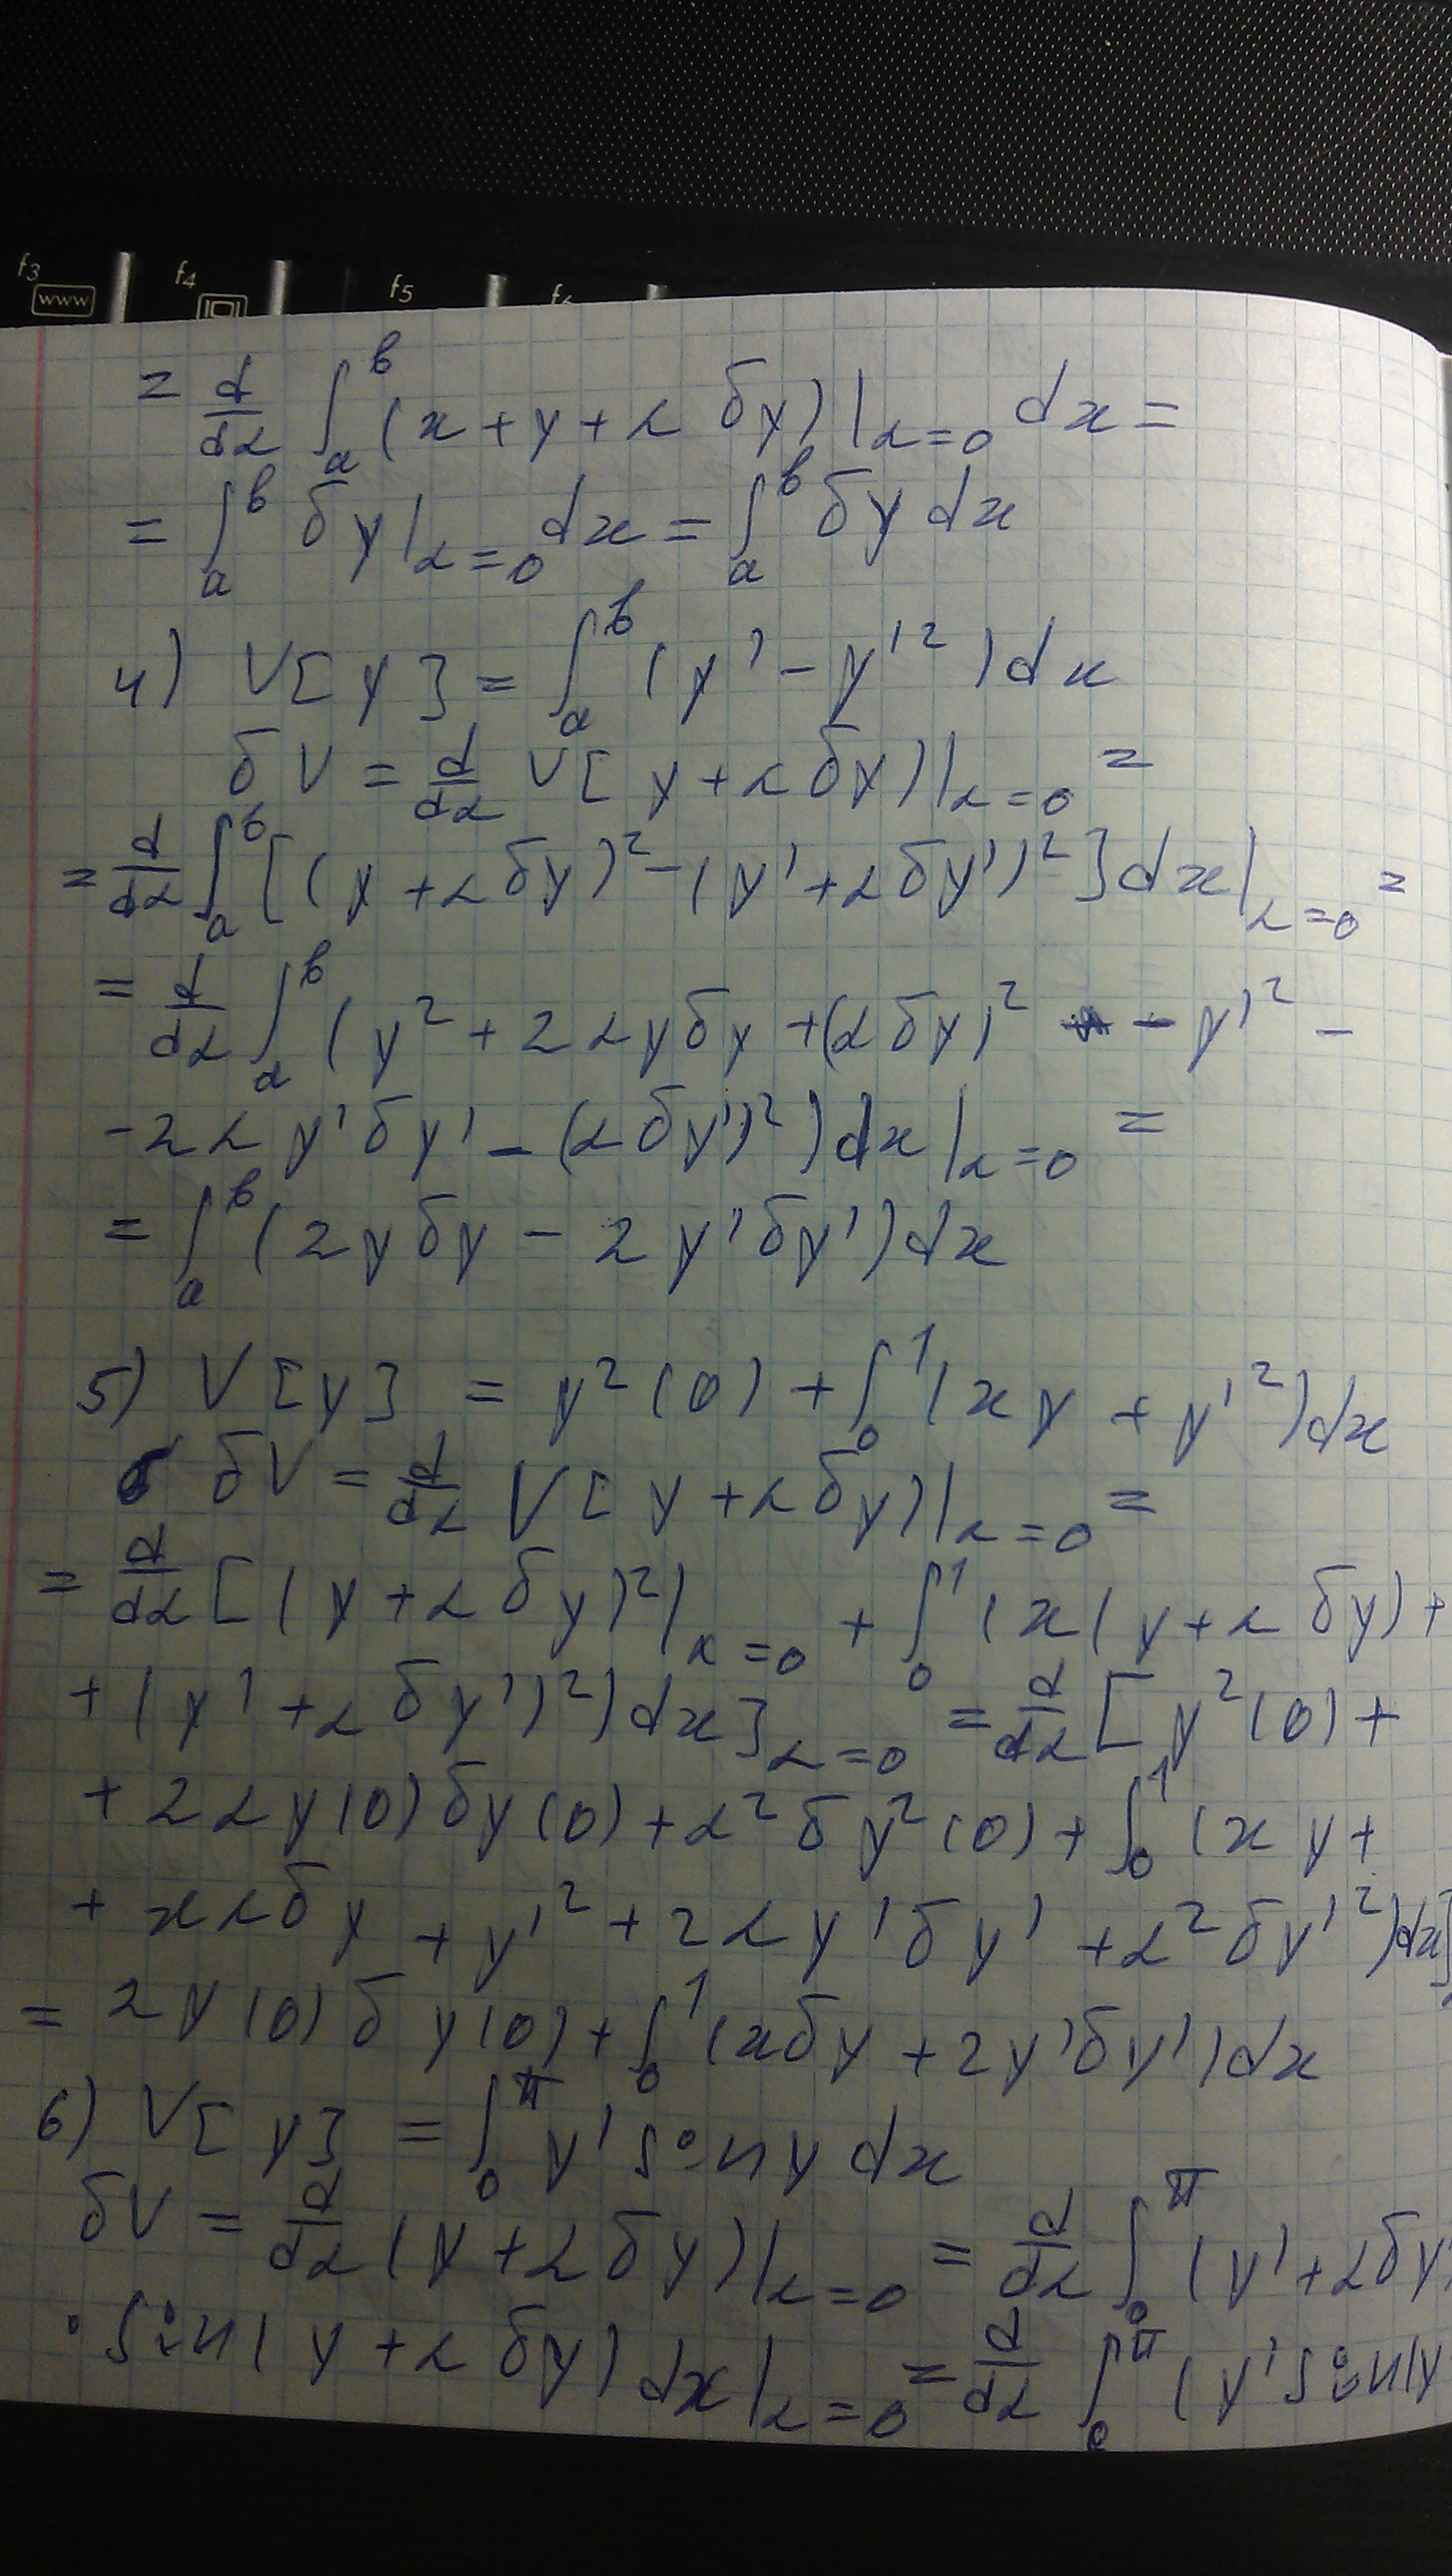 f3 f4 f5 f6
www
= d/dα ∫_a^b (x + y + α δy)|_{α=0} dx =
= ∫_a^b δy|_{α=0} dx = ∫_a^b δy dx
4) V[y] = ∫_a^b (y' - y'^2) dx
δV = d/dα V[y + α δy)|_{α=0} =
= d/dα ∫_a^b [(y + α δy)^2 - (y' + α δy')^2] dx|_{α=0} =
= d/dα ∫_a^b (y^2 + 2αy δy + (α δy)^2 - y'^2 -
- 2α y' δy' - (α δy')^2) dx|_{α=0} =
= ∫_a^b (2y δy - 2y' δy') dx
5) V[y] = y^2(0) + ∫_0^1 (xy + y'^2) dx
δV = d/dα V[y + α δy)|_{α=0} =
= d/dα [(y + α δy)^2|_{x=0} + ∫_0^1 (x(y + α δy) +
+ (y' + α δy')^2) dx]_{α=0} = d/dα [y^2(0) +
+ 2α y(0) δy(0) + α^2 δy^2(0) + ∫_0^1 (xy +
+ xα δy + y'^2 + 2α y' δy' + α^2 δy'^2) dx]
= 2y(0) δy(0) + ∫_0^1 (x δy + 2y' δy') dx
6) V[y] = ∫_0^π y' sin y dx
δV = d/dα (y + α δy)|_{α=0} = d/dα ∫_0^π (y' + α δy'
· sin(y + α δy) dx|_{α=0} = d/dα ∫_0^π (y' sin(y